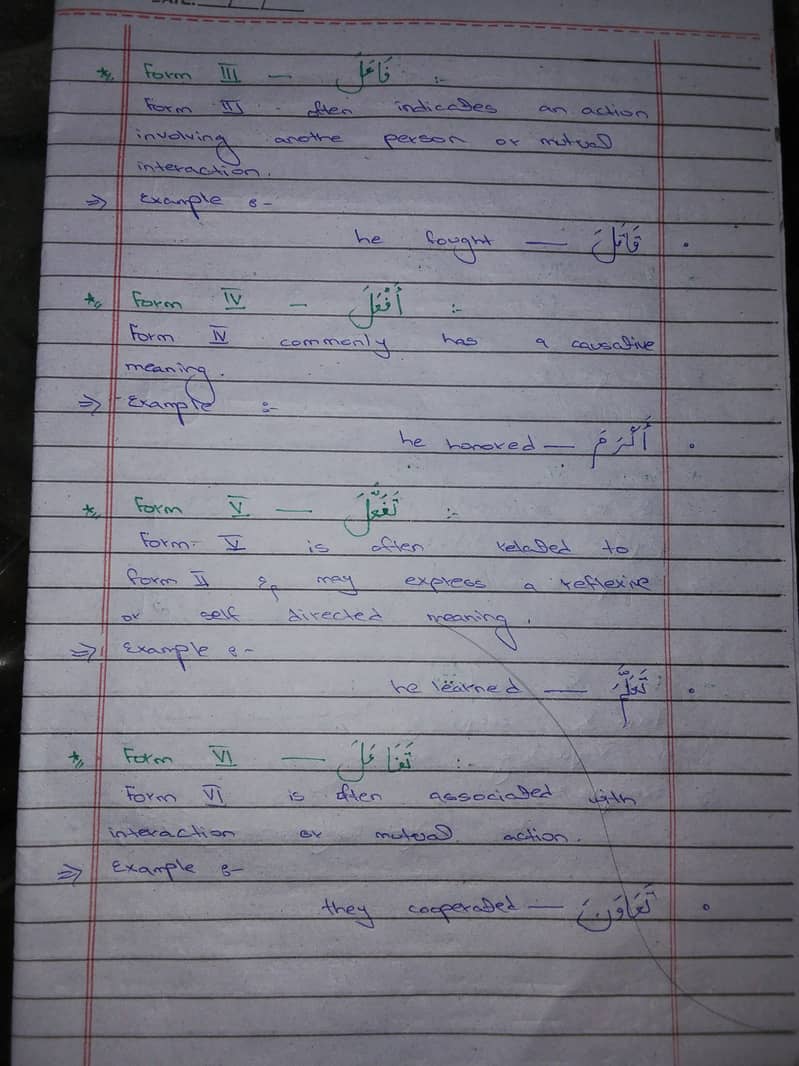 DATE: / /
* Form III — فَاعَلَ :-
Form III often indicades an action
involving anothe person or mutual
interaction.
⇒ Example :-
he fought — قَاتَلَ .
* Form IV — أَفْعَلَ :-
Form IV commonly has a causative
meaning.
⇒ Example :-
he honored — أَكْرَمَ .
* Form V — تَفَعَّلَ :-
Form- V is often related to
form II & may express a reflexive
or self directed meaning.
⇒ Example :-
he learned — تَعَلَّمَ .
* Form VI — تَفَاعَلَ :-
Form VI is often associated with
interaction or mutual action.
⇒ Example :-
they cooperaded — تَعَاوَنَ .